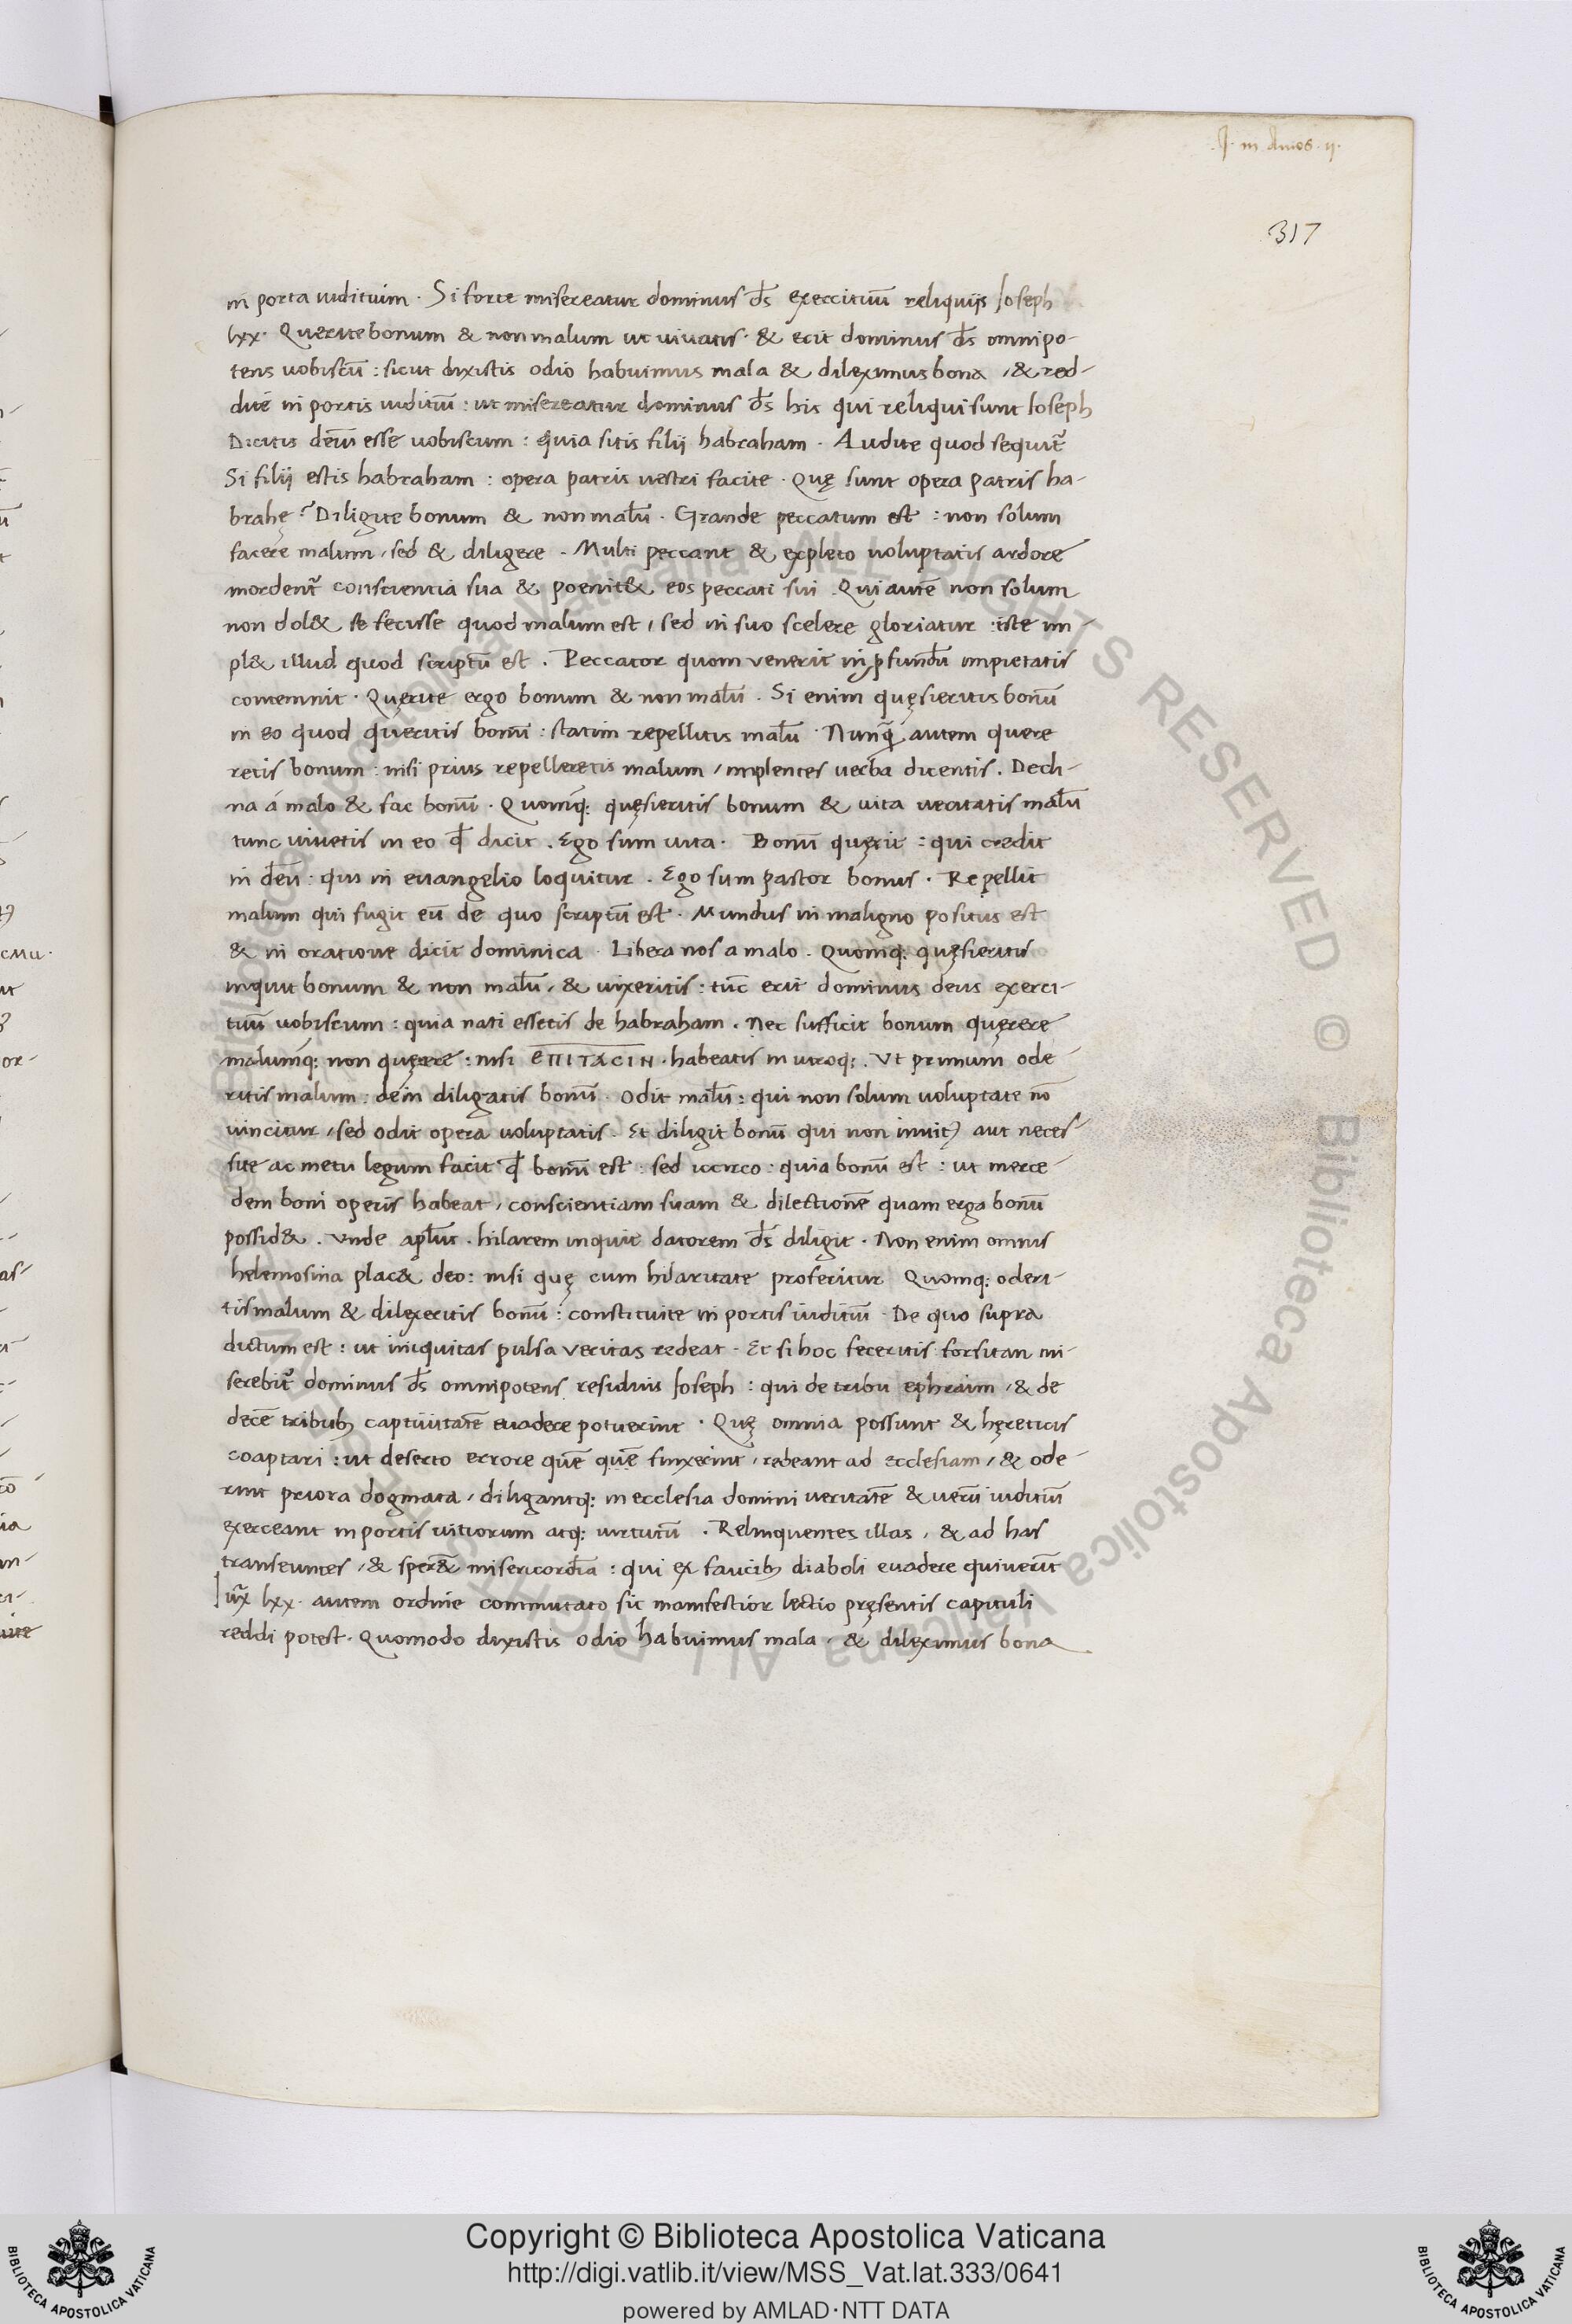 .J. in Amos. ij.
317
in porta iuditium. Si forte misereatur dominus d̄s exercituū reliquijs Ioseph
lxx. Querite bonum & non malum ut uiuatis. & erit dominus d̄s omnipo-
tens uobiscū : sicut dixistis odio habuimus mala & dileximus bona, & red-
dite in portis iuditiū : ut misereatur dominus d̄s his qui reliqui sunt Ioseph
Dicitis deū esse uobiscum : quia sitis filij habraham. Audite quod sequit̄
Si filij estis habraham : opera patris uestri facite. Quę sunt opera patris ha-
brahę? Diligite bonum & non malū. Grande peccatum est : non solum
facere malum, sed & diligere. Multi peccant & expleto uoluptatis ardore
mordent̄ conscientia sua & poenit& eos peccati sui. Qui autē non solum
non dol& se fecisse quod malum est, sed in suo scelere gloriatur : iste im-
pl& illud quod scriptū est. Peccator quom venerit in ꝓfundū impietatis
contemnit. Quęrite ergo bonum & non malū. Si enim quęsieritis bonū
in eo quod queritis bonū : statim repellitis malū. Nunq̄ autem quere
retis bonum : nisi prius repelleretis malum, implentes uerba dicentis. Decli-
na á malo & fac bonū. Quomq; quęsieritis bonum & uita ueritatis malū
tunc uiuetis in eo q̄ dicit. Ego sum uita. Bonū quęrit : qui credit
in deū. qui in euangelio loquitur. Ego sum pastor bonus. Repellit
malum qui fugit eū de quo scriptū est. Mundus in maligno positus est
& in oratione dicit dominica. Libera nos a malo. Quomq; quęsieritis
inquit bonum & non malū, & uixeritis : tūc erit dominus deus exerci-
tuū uobiscum : quia nati essetis de habraham. Nec sufficit bonum quęrere
malumq; non quęrere : nisi ЄΠΙΤΑCΙΝ. habeatis in utroq;. Vt primum ode-
ritis malum : dein diligatis bonū. Odit malū : qui non solum uoluptate nō
uincitur, sed odit opera uoluptatis. Et diligit bonū qui non inuitꝰ aut neces-
site ac metu legum facit q̄ bonū est : sed uerco : quia bonū est : ut merce-
dem boni operis habeat, conscientiam suam & dilectionē quam erga bonū
possid&. Vnde aplūs. hilarem inquit datorem d̄s diligit. Non enim omnis
helemosina plac& deo : nisi quę cum hilaritate profertur Quomq; oderi-
tis malum & dilexeritis bonū : constituite in portis iuditiū. De quo supra
dictum est : ut iniquitas pulsa veritas redeat. Et si hoc feceritis forsitan mi-
serebit̄ dominus d̄s omnipotens residuis Ioseph : qui de tribu ephraim, & de
decē tribubꝫ captiuitatē euadere potuerint. Quę omnia possunt & hęreticis
coaptari : ut deserto errore quē quē finxerint, redeant ad ecclesiam, & ode-
rint priora dogmata, diligantq; in ecclesia domini ueritatē & uerū iuditiū
exerceant in portis uitiorum atq; uirtutū. Relinquentes illas, & ad has
transeuntes, & sper& misericordiā : qui ex faucibꝫ diaboli euadere quiuerūt
Iux̄ lxx. autem ordine commutato sic manifestior lectio pręsentis capituli
reddi potest. Quomodo dixistis odio habuimus mala, & dileximus bona
Copyright © Biblioteca Apostolica Vaticana
http://digi.vatlib.it/view/MSS_Vat.lat.333/0641
powered by AMLAD·NTT DATA